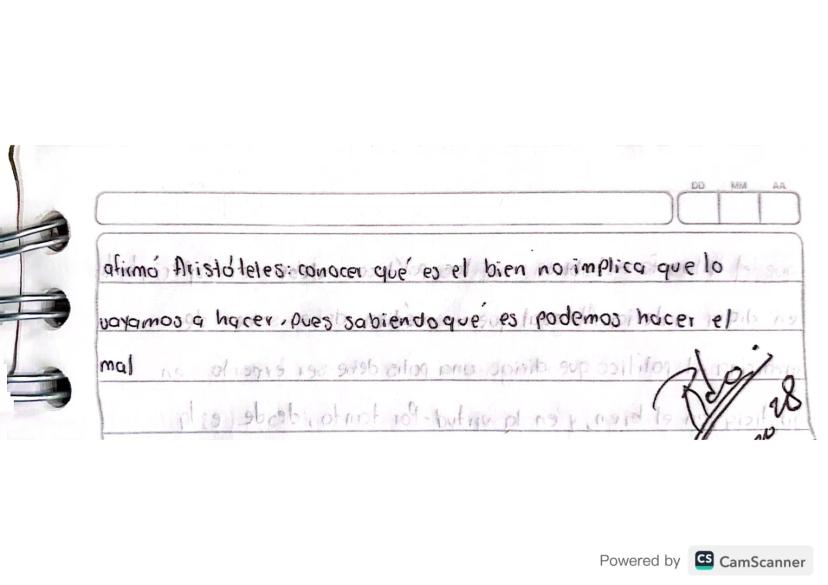 DD MM AA
afirmó Aristóteles: conocer qué es el bien no implica que lo
vayamos a hacer. Pues sabiendo qué es podemos hacer el
mal
28
Powered by CS CamScanner